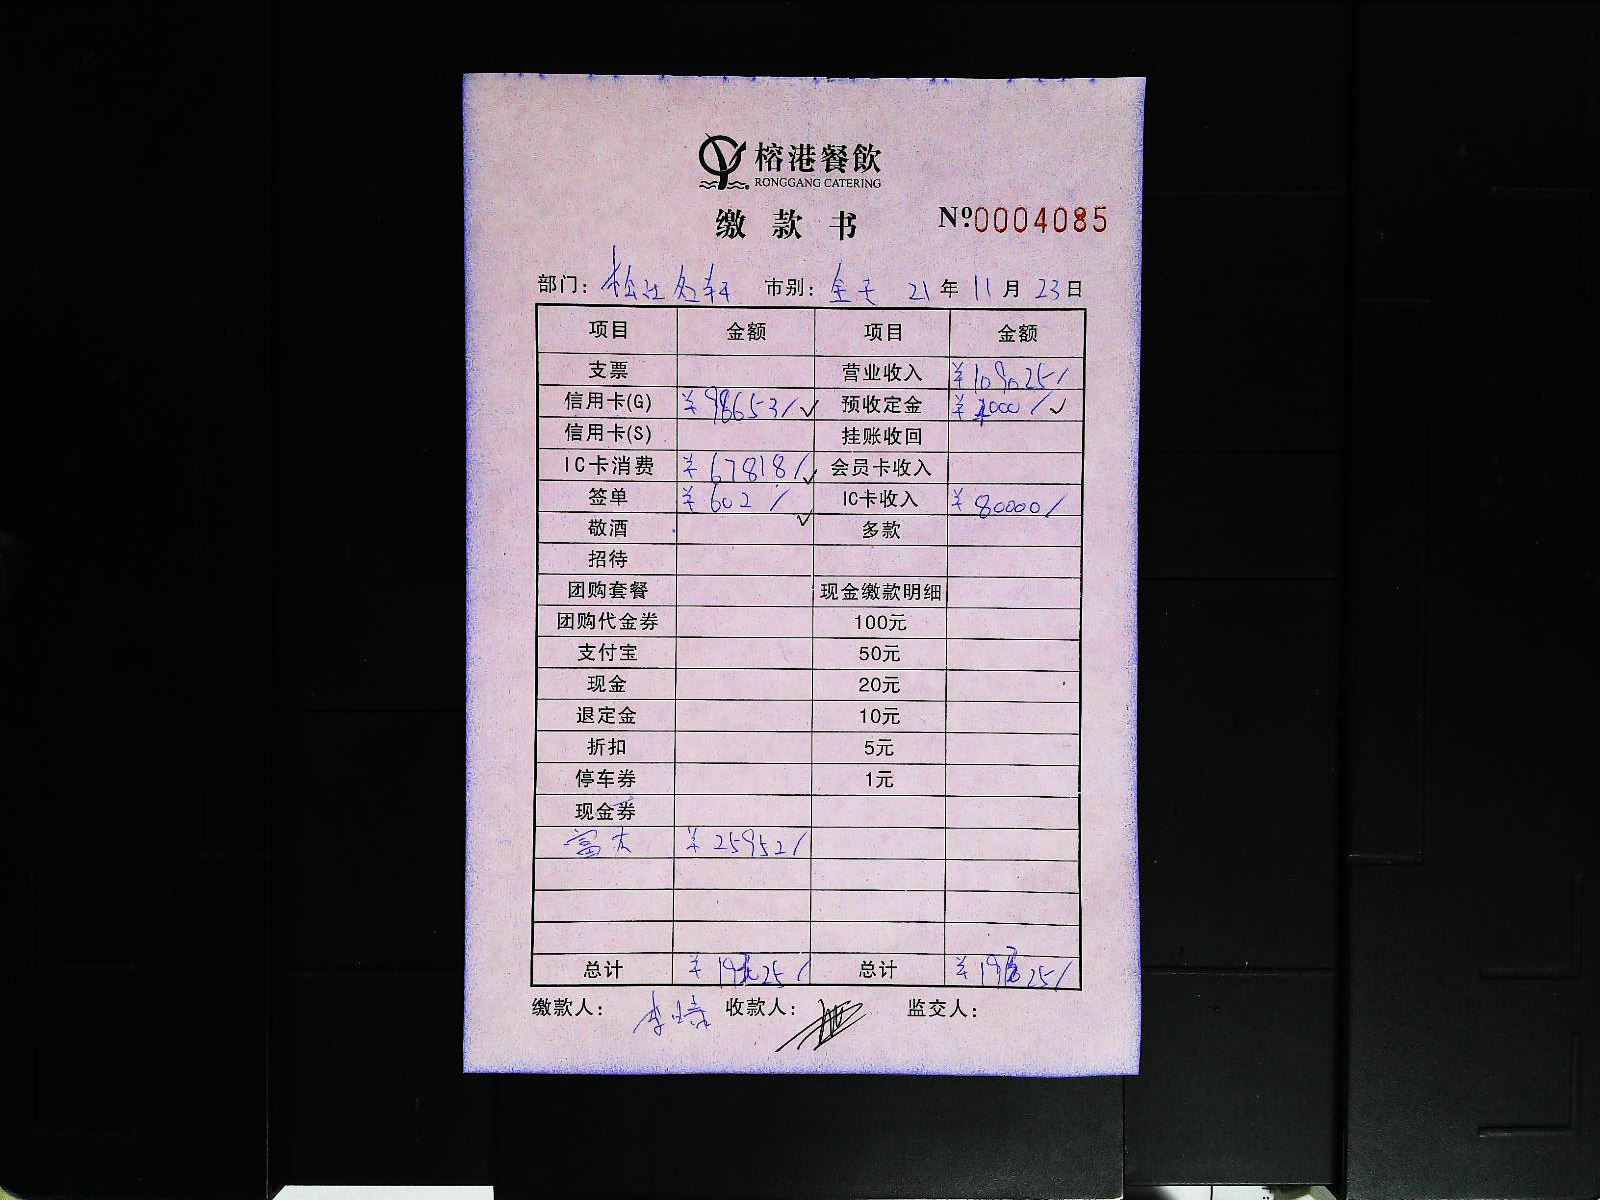 榕港餐飲
RONGGANG CATERING
缴 款 书 Nº 0004085
部门: 松江名轩 市别: 全天 21 年 11 月 23 日
项目 金额 项目 金额
支票 营业收入 ¥109025/
信用卡(G) ¥98653/✓ 预收定金 ¥4000/✓
信用卡(S) 挂账收回
IC卡消费 ¥67818/✓ 会员卡收入
签单 ¥602/✓ IC卡收入 ¥80000/
敬酒 多款
招待
团购套餐 现金缴款明细
团购代金券 100元
支付宝 50元
现金 20元
退定金 10元
折扣 5元
停车券 1元
现金券
富友 ¥25952/
总计 ¥193025/ 总计 ¥193025/
缴款人: 收款人: 监交人: